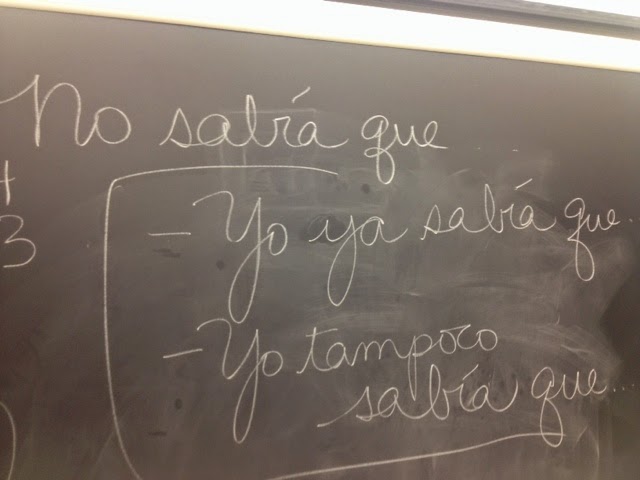 No sabía que...
+
3
- Yo ya sabía que..
- Yo tampoco
sabía que...